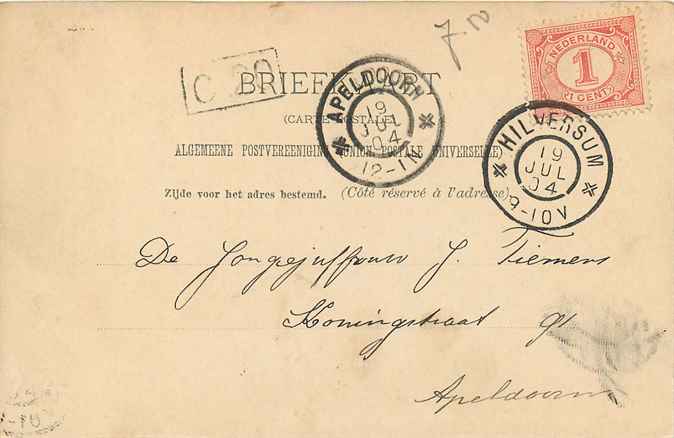 7
NEDERLAND
1
(1 CENT)
BRIEFKAART
APELDOORN
19
JUL
04
12-1N
HILVERSUM
19
JUL
04
9-10V
(CARTE POSTALE)
ALGEMEENE POSTVEREENIGING (UNION POSTALE UNIVERSELLE)
Zijde voor het adres bestemd. (Côté réservé à l'adresse)
De Jongejuffrouw J. Tiemens
Koningstraat
Apeldoorn